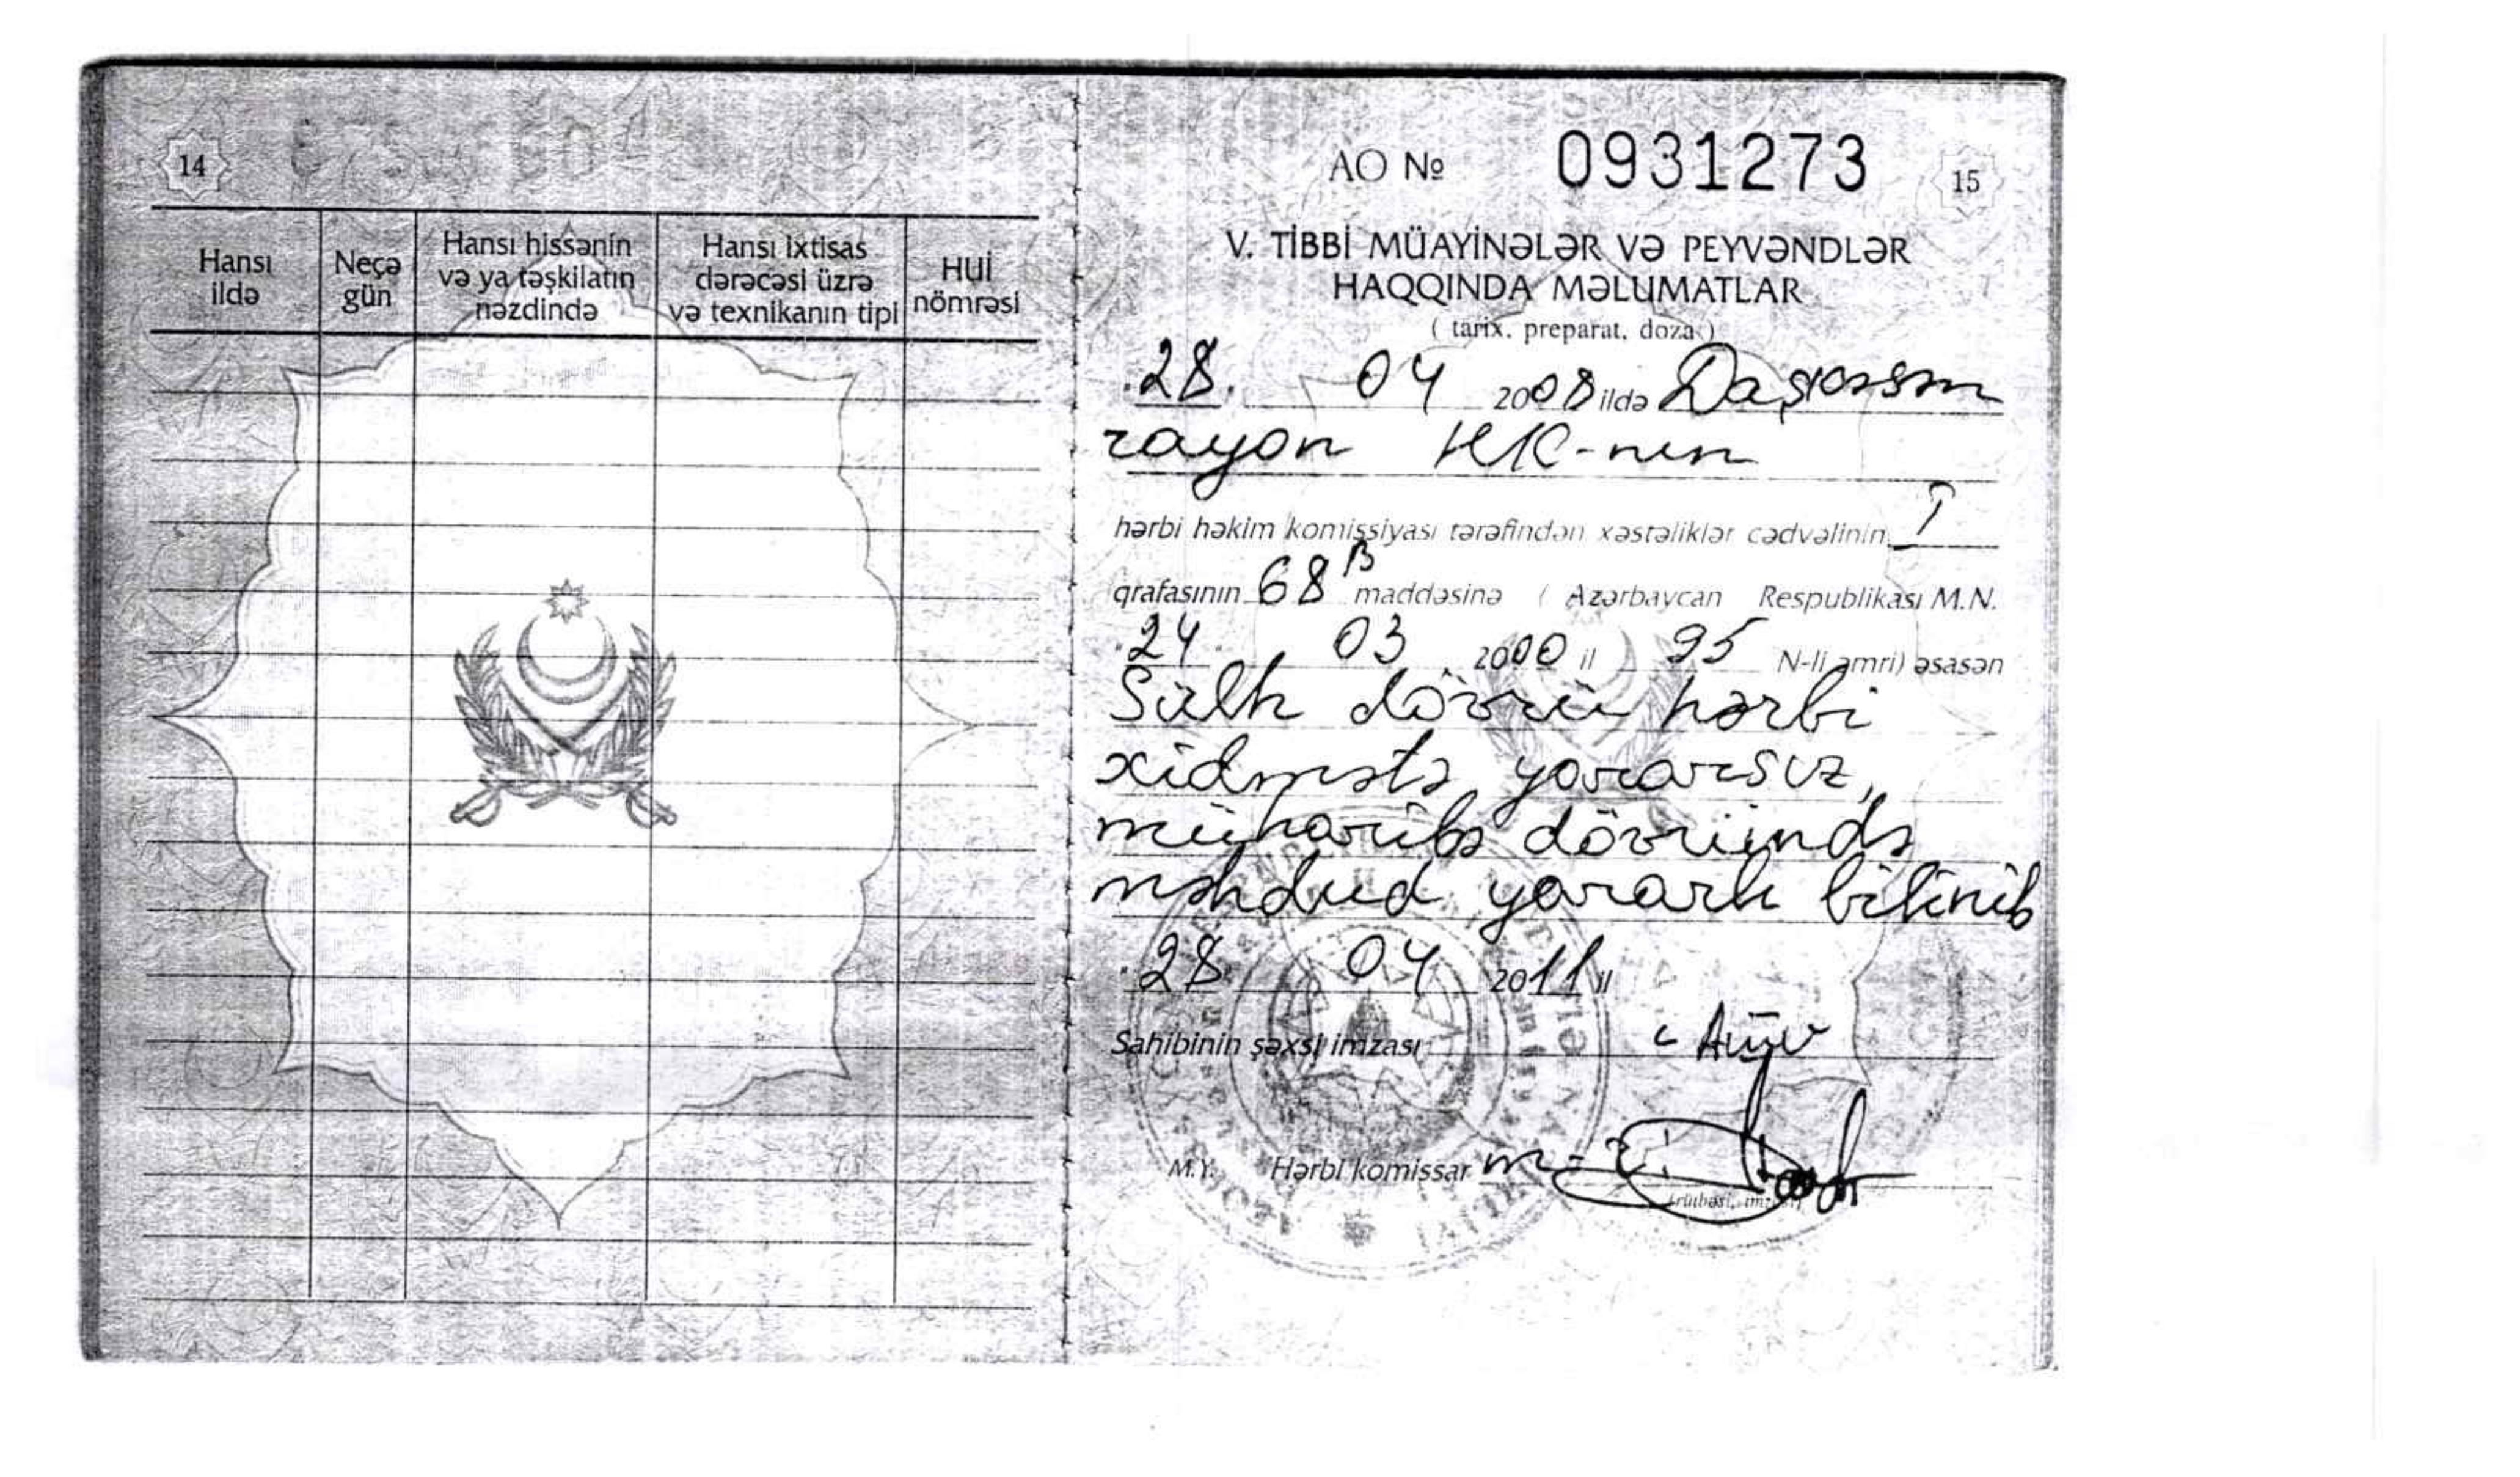 14
Hansı ildə
Neçə gün
Hansı hissənin və ya təşkilatın nəzdində
Hansı ixtisas dərəcəsi üzrə və texnikanın tipi
HUİ nömrəsi
AO № 0931273
15
V. TİBBİ MÜAYİNƏLƏR VƏ PEYVƏNDLƏR
HAQQINDA MƏLUMATLAR
( tarix, preparat, doza )
"28" 04 2008 ildə Daşkəsən
rayon HK-nın
hərbi həkim komissiyası tərəfindən xəstəliklər cədvəlinin I
qrafasının 68 B maddəsinə ( Azərbaycan Respublikası M.N.
"24" 03 2000 il 95 N-li əmri) əsasən
Sülh dövrü hərbi
xidmətə yararsız,
müharibə dövründə
məhdud yararlı bilinib
"28" 04 2011 il
Sahibinin şəxsi imzası
M.Y. Hərbi komissar
(rütbəsi, imzası)